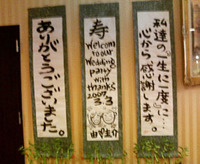 私達の『一生に一度に…』
心から感謝します。
寿
Welcome
to our
Wedding
party
with
thanks
2007
3.3
ありがとうございました。